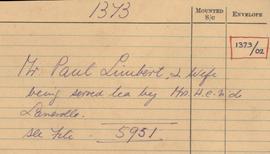 1373
MOUNTED S/C
ENVELOPE
1373/02
Mr Paul Limbert & Wife
being served tea by Mrs H.C.W. de
See File - 5951